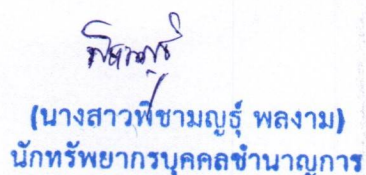 (นางสาวพิชามญธุ์ พลงาม)
นักทรัพยากรบุคคลชำนาญการ